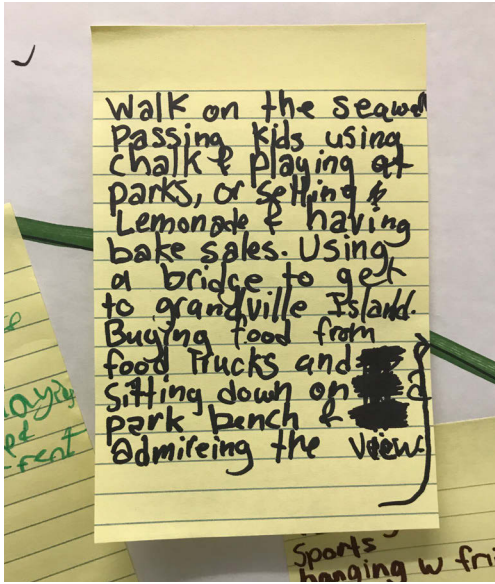 Walk on the seawall
Passing kids using
chalk & playing at
parks, or selling
Lemonade & having
bake sales. Using
a bridge to get
to grandville Island.
Buying food from
food Trucks and
sitting down on a
park bench &
admireing the view.
Sports
hanging w fri